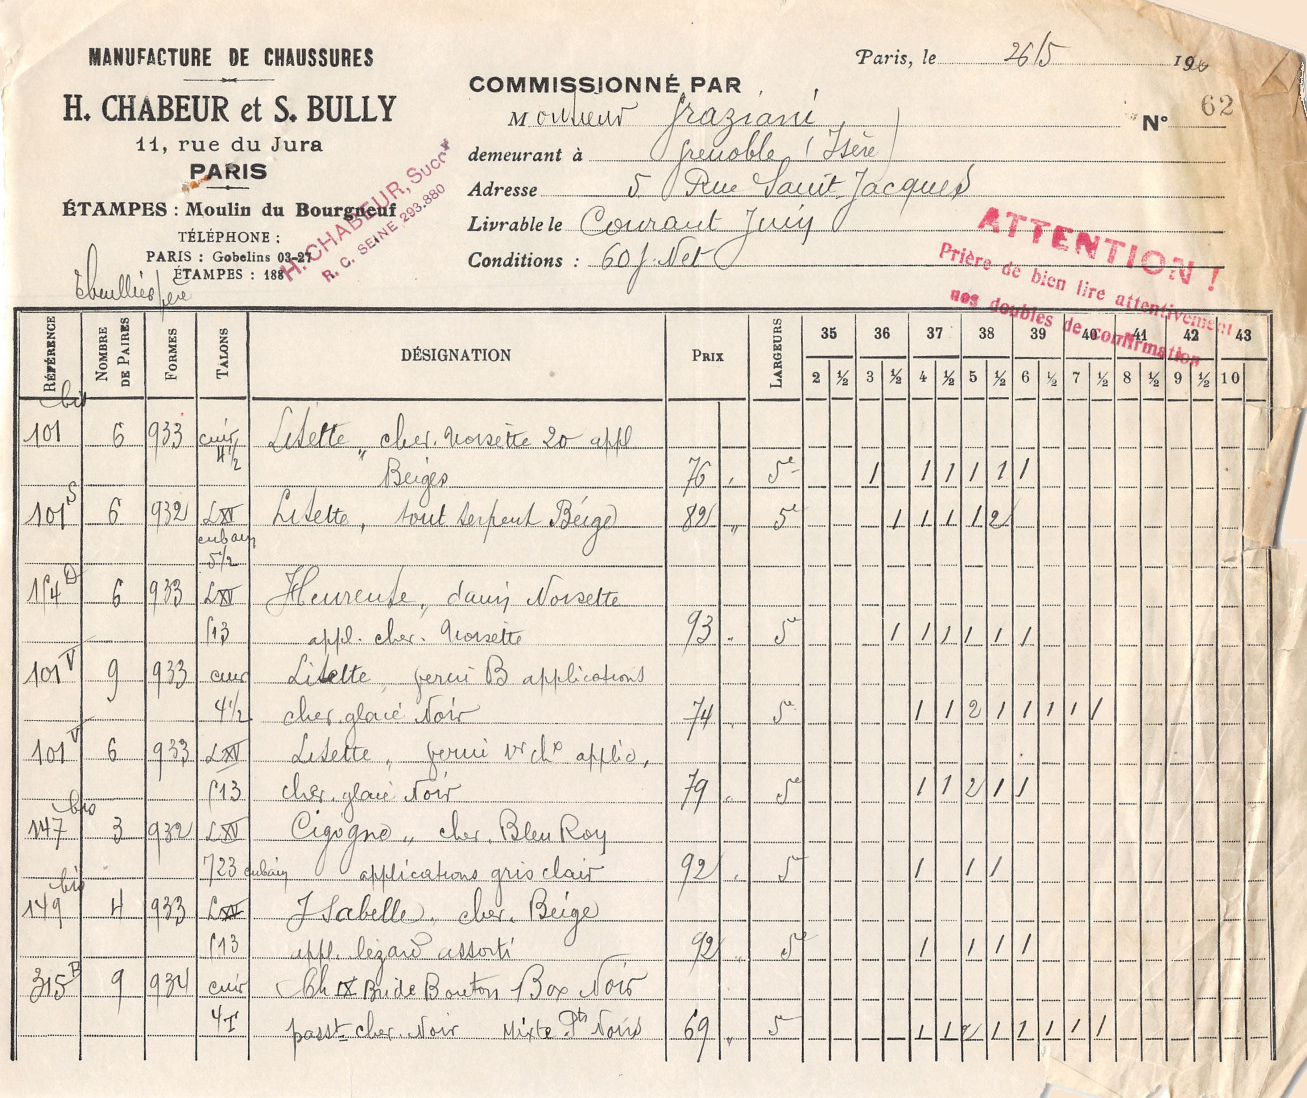 MANUFACTURE DE CHAUSSURES
H. CHABEUR et S. BULLY
11, rue du Jura
PARIS
ÉTAMPES : Moulin du Bourgneuf
TÉLÉPHONE :
PARIS : Gobelins 03-27
ÉTAMPES : 188
H. CHABEUR, Succr
R. C. SEINE 293.880
Paris, le 26/5 19
COMMISSIONNÉ PAR
Monsieur Graziani
N° 62
demeurant à Grenoble (Isère)
Adresse 5 Rue Saint Jacques
Livrable le Courant Juin
Conditions : 60 j. Net
ATTENTION !
Prière de bien lire attentivement
nos doubles de confirmation
RÉFÉRENCE NOMBRE DE PAIRES FORMES TALONS DÉSIGNATION PRIX LARGEURS 35 36 37 38 39 40 41 42 43
2 ½ 3 ½ 4 ½ 5 ½ 6 ½ 7 ½ 8 ½ 9 ½ 10
bis
101 6 933 cuir Lisette „ chev. Noisette 20 appl
4 1/2 Beiges 76 „ 5e 1 1 1 1 1 1
101 S 6 932 LXV Lisette, tout serpent Beige 82 „ 5e 1 1 1 1 2
cubain
5 1/2
154 D 6 933 LXV Heureuse „ daim Noisette
f13 appl. chev. Noisette 93 „ 5e 1 1 1 1 1 1
101 V 9 933 cuir Lisette „ verni B applications
4 1/2 chev. glacé Noir 74 „ 5e 1 1 2 1 1 1 1 1
101 V 6 933 LXV Lisette „ verni applic,
f13 chev. glacé Noir 79 „ 5e 1 1 2 1 1
bis
147 3 932 LXV Cigogne „ chev. Bleu Roy
723 cubain applications gris clair 92 „ 5 1 1 1
bis
149 4 933 LXV Isabelle „ chev. Beige
f13 appl. lézard assorti 92 „ 5e 1 1 1 1
315 B 9 934 cuir Ch IX Bride Bouton Box Noir
4T passt chev. Noir Mixte Pts Noirs 69 „ 5e 1 1 2 1 1 1 1 1